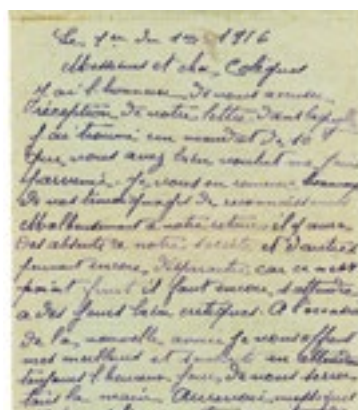 Le 1er du 1916
Messieurs et cher Colègues
J'ai l'honneur de vous accuser
réception de votre lettre dans laquelle
j'ai trouvé un mandat de 10
que vous avez bien voulut me faire
parvenir. Je vous en remercie
de vos témoignages de
Malheureusement à notre retour il y aura
des absents de notre société et d'autres
peuvent encore disparaitre car ce n'est
point finit il faut encore s'attendre
a des jours bien critiques. A l'occasion
de la nouvelle année je vous offre
mes meilleurs et en attendant
toujours l'heureux jour de vous serrer
tous la main